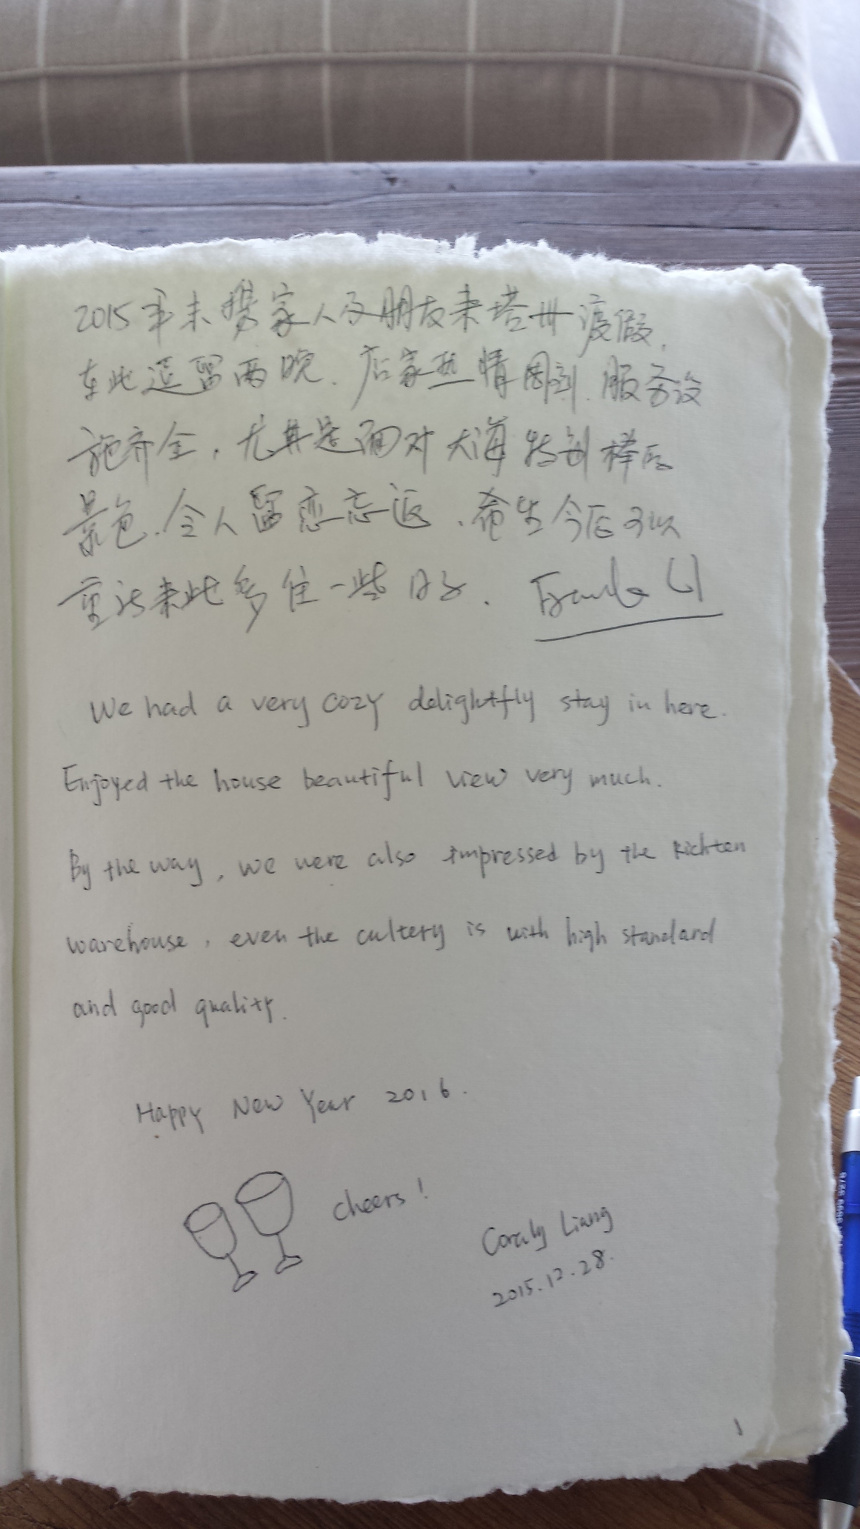 2015年末携家人及朋友来塔州渡假,
在此逗留两晚. 店家热情周到. 服务设
施齐全, 尤其是面对大海特别棒的
景色. 令人留恋忘返. 希望今后可以
重访来此多住一些日子.
We had a very cozy delightfly stay in here.
Enjoyed the house beautiful view very much.
By the way, we were also impressed by the Kichten
warehouse, even the cultery is with high standard
and good quality.
Happy New Year 2016.
cheers!
Coraly Liang
2015.12.28.
1